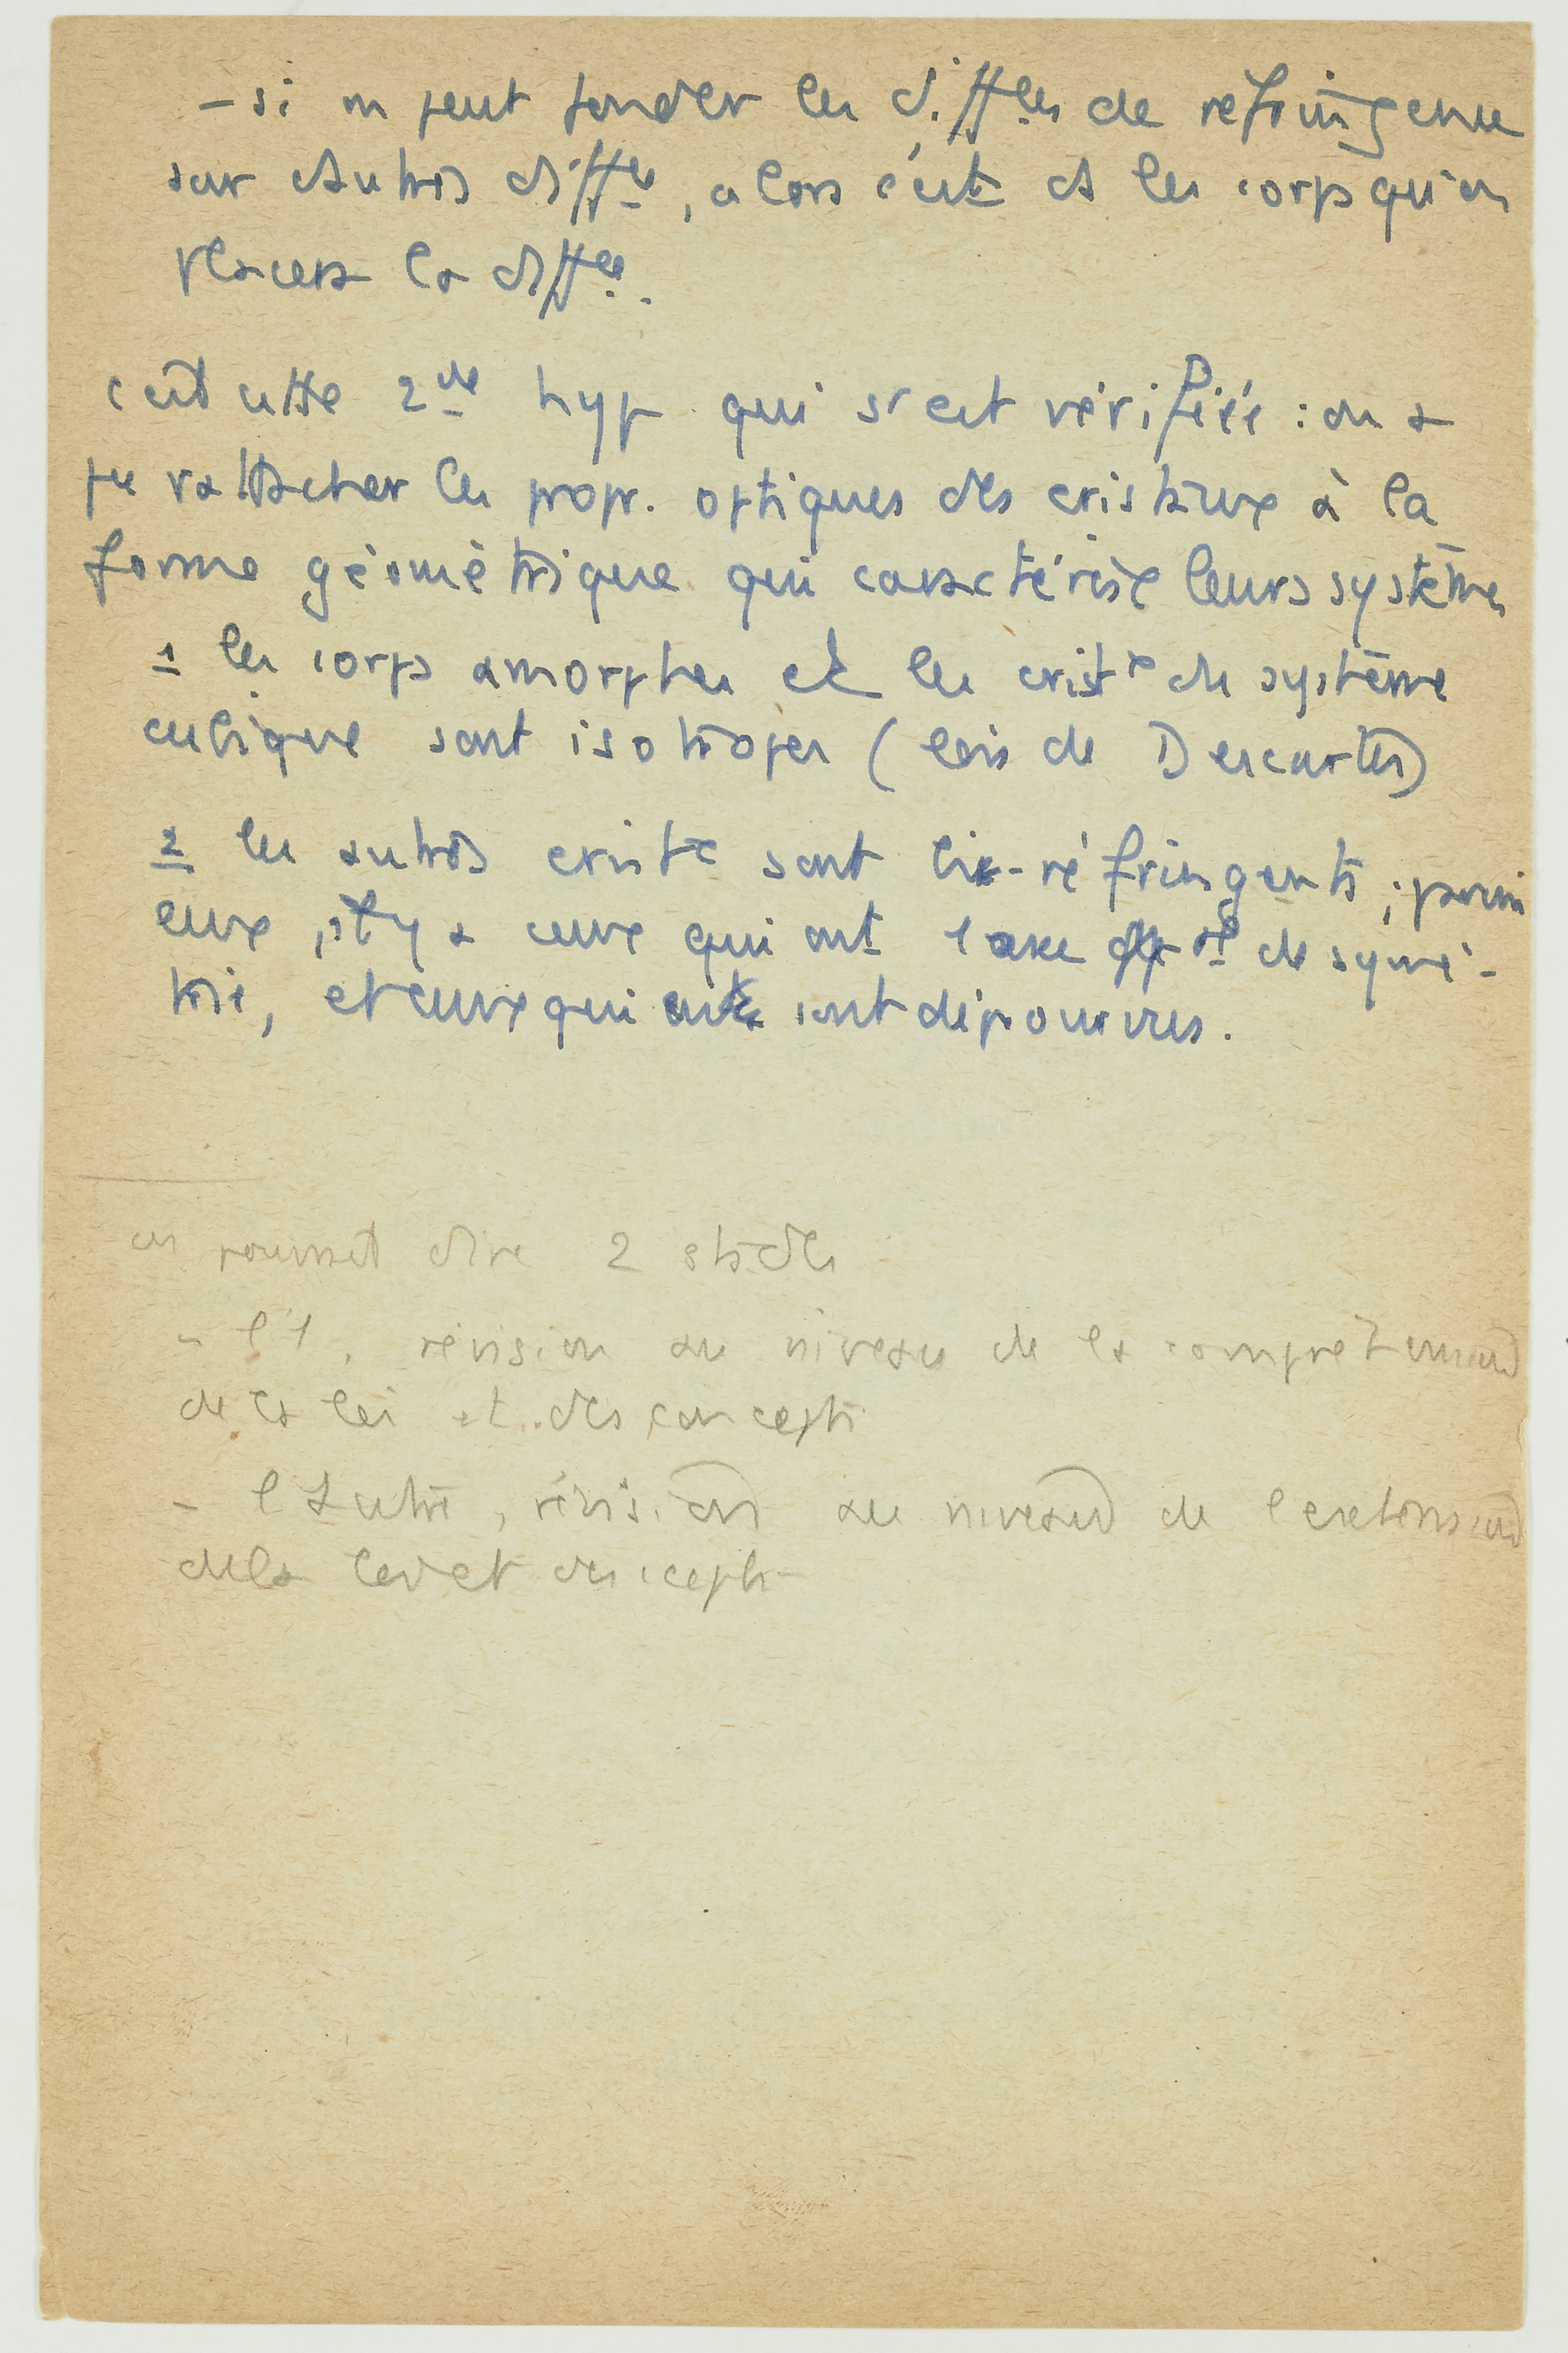 - si on peut fonder les diffces de réfringence
sur d'autres diffces, alors c'est ds les corps qu'on
placera la diffce.
c'est cette 2de hyp qui s'est vérifiée : on a
pu rattacher les propr. optiques des cristaux à la
forme géométrique qui caractérise leurs systèmes
1 les corps amorphes et les cristx du système
cubique sont isotropes (lois de Descartes)
2 les autres cristx sont bi-réfringents ; parmi
eux, il y a ceux qui ont 1 axe de symé-
trie, et ceux qui sont dépourvus.
on pourrait dire 2 stades
- l'1, révision au niveau de la compréhension
de la loi et des concepts
- l'autre, révision au niveau de l'extension
de la loi et des cepts